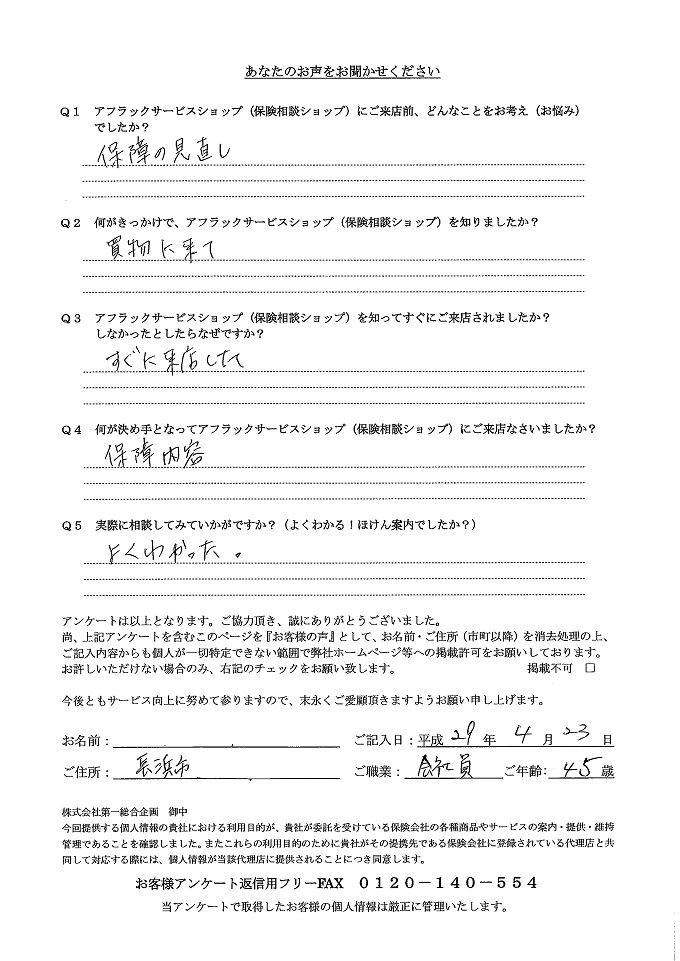 あなたのお声をお聞かせください
Q1 アフラックサービスショップ（保険相談ショップ）にご来店前、どんなことをお考え（お悩み）
でしたか？
保障の見直し
Q2 何がきっかけで、アフラックサービスショップ（保険相談ショップ）を知りましたか？
買物に来て
Q3 アフラックサービスショップ（保険相談ショップ）を知ってすぐにご来店されましたか？
しなかったとしたらなぜですか？
すぐに来店した
Q4 何が決め手となってアフラックサービスショップ（保険相談ショップ）にご来店なさいましたか？
保障内容
Q5 実際に相談してみていかがですか？（よくわかる！ほけん案内でしたか？）
よくわかった。
アンケートは以上となります。ご協力頂き、誠にありがとうございました。
尚、上記アンケートを含むこのページを『お客様の声』として、お名前・ご住所（市町以降）を消去処理の上、
ご記入内容からも個人が一切特定できない範囲で弊社ホームページ等への掲載許可をお願いしております。
お許しいただけない場合のみ、右記のチェックをお願い致します。 掲載不可 □
今後ともサービス向上に努めて参りますので、末永くご愛顧頂きますようお願い申し上げます。
お名前： ご記入日：平成 29 年 4 月 23 日
ご住所： 長浜市 ご職業： 会社員 ご年齢： 45 歳
株式会社第一総合企画 御中
今回提供する個人情報の貴社における利用目的が、貴社が委託を受けている保険会社の各種商品やサービスの案内・提供・維持
管理であることを確認しました。またこれらの利用目的のために貴社がその提携先である保険会社に登録されている代理店と共
同して対応する際には、個人情報が当該代理店に提供されることにつき同意します。
お客様アンケート返信用フリーFAX 0120－140－554
当アンケートで取得したお客様の個人情報は厳正に管理いたします。